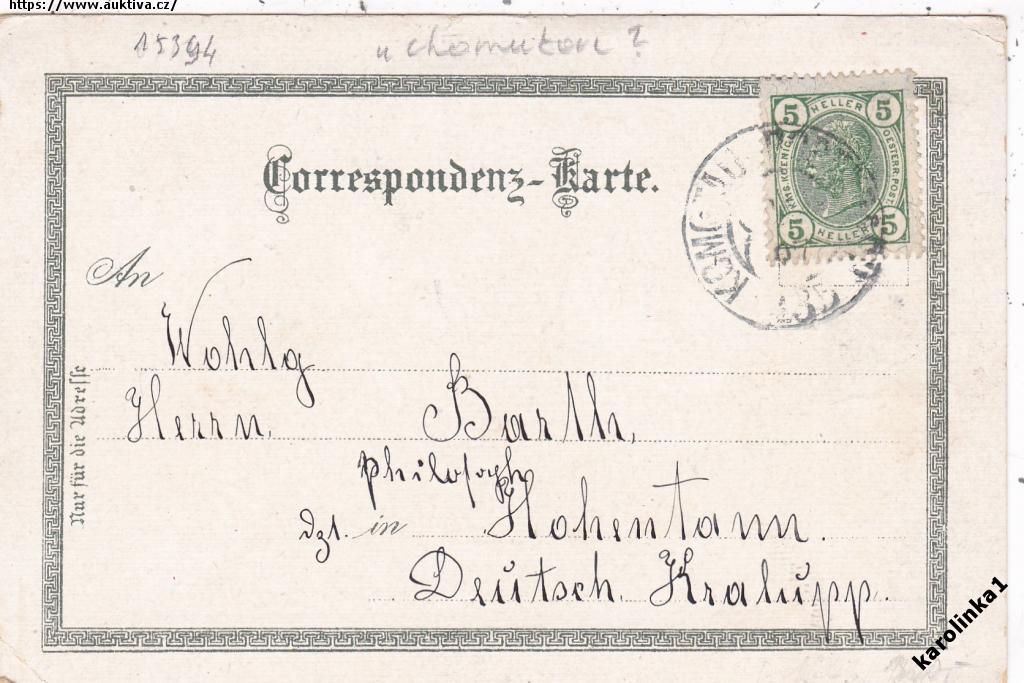 https://www.auktiva.cz/
15394
u chomutov?
Correspondenz-Karte.
5 HELLER 5
KAIS. KOENIGL. OESTERR. POST
5 HELLER 5
An
Wohlg
Herrn. Barth,
Philosoph
dzt. in Hohentann.
Deutsch. Kralupp.
Nur für die Adresse
karolinka1